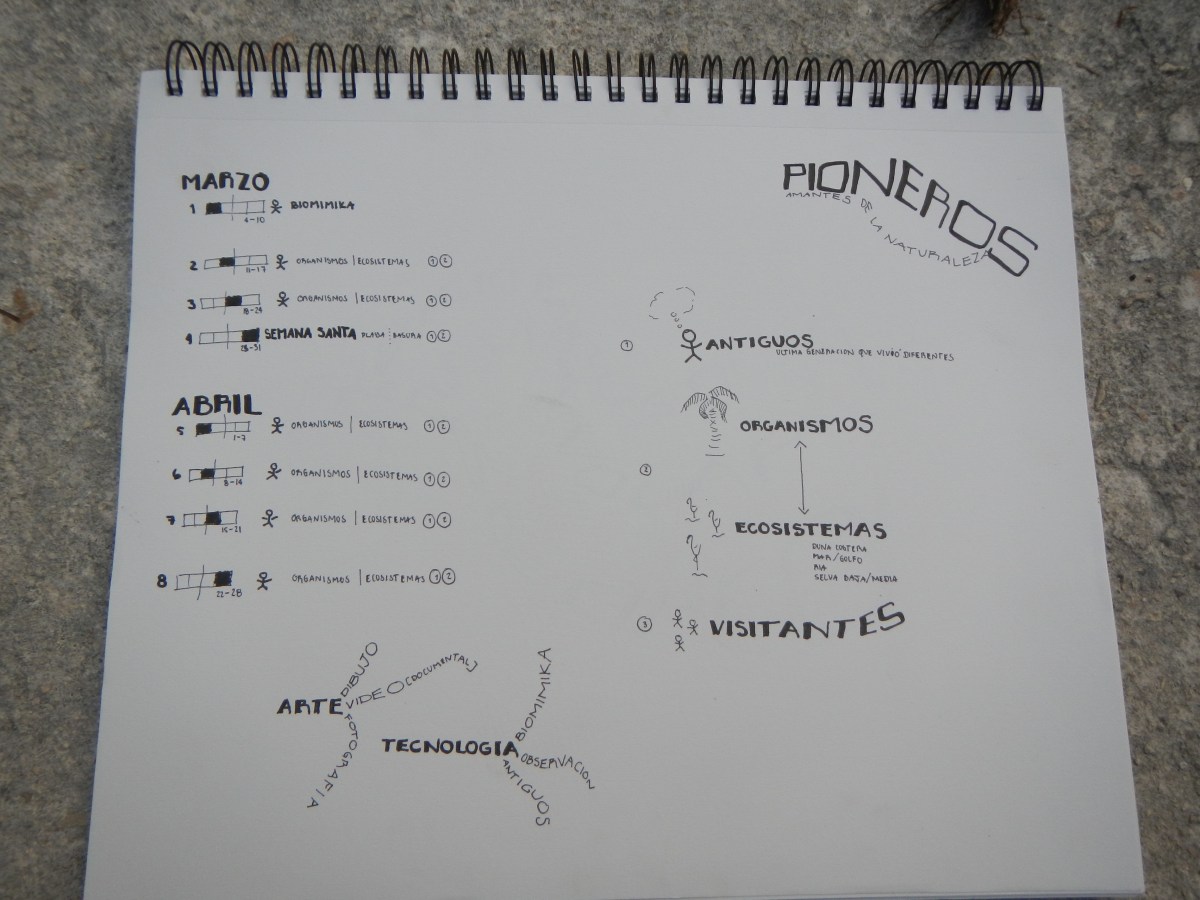 MARZO
1 4-10 BIOMIMIKA
2 11-17 ORGANISMOS | ECOSISTEMAS 1 2
3 18-24 ORGANISMOS | ECOSISTEMAS 1 2
4 25-31 SEMANA SANTA PLAYA BASURA 1 2
ABRIL
5 1-7 ORGANISMOS | ECOSISTEMAS 1 2
6 8-14 ORGANISMOS | ECOSISTEMAS 1 2
7 15-21 ORGANISMOS | ECOSISTEMAS 1 2
8 22-28 ORGANISMOS | ECOSISTEMAS 1 2
ARTE
DIBUJO
VIDEO (DOCUMENTAL)
FOTOGRAFIA
TECNOLOGIA
BIOMIMIKA
OBSERVACION
ANTIGUOS
PIONEROS
AMANTES DE LA NATURALEZA
1 ANTIGUOS
ULTIMA GENERACION QUE VIVIÓ DIFERENTES
ORGANISMOS
2
ECOSISTEMAS
DUNA COSTERA
MAR/GOLFO
RIA
SELVA BAJA/MEDIA
3 VISITANTES